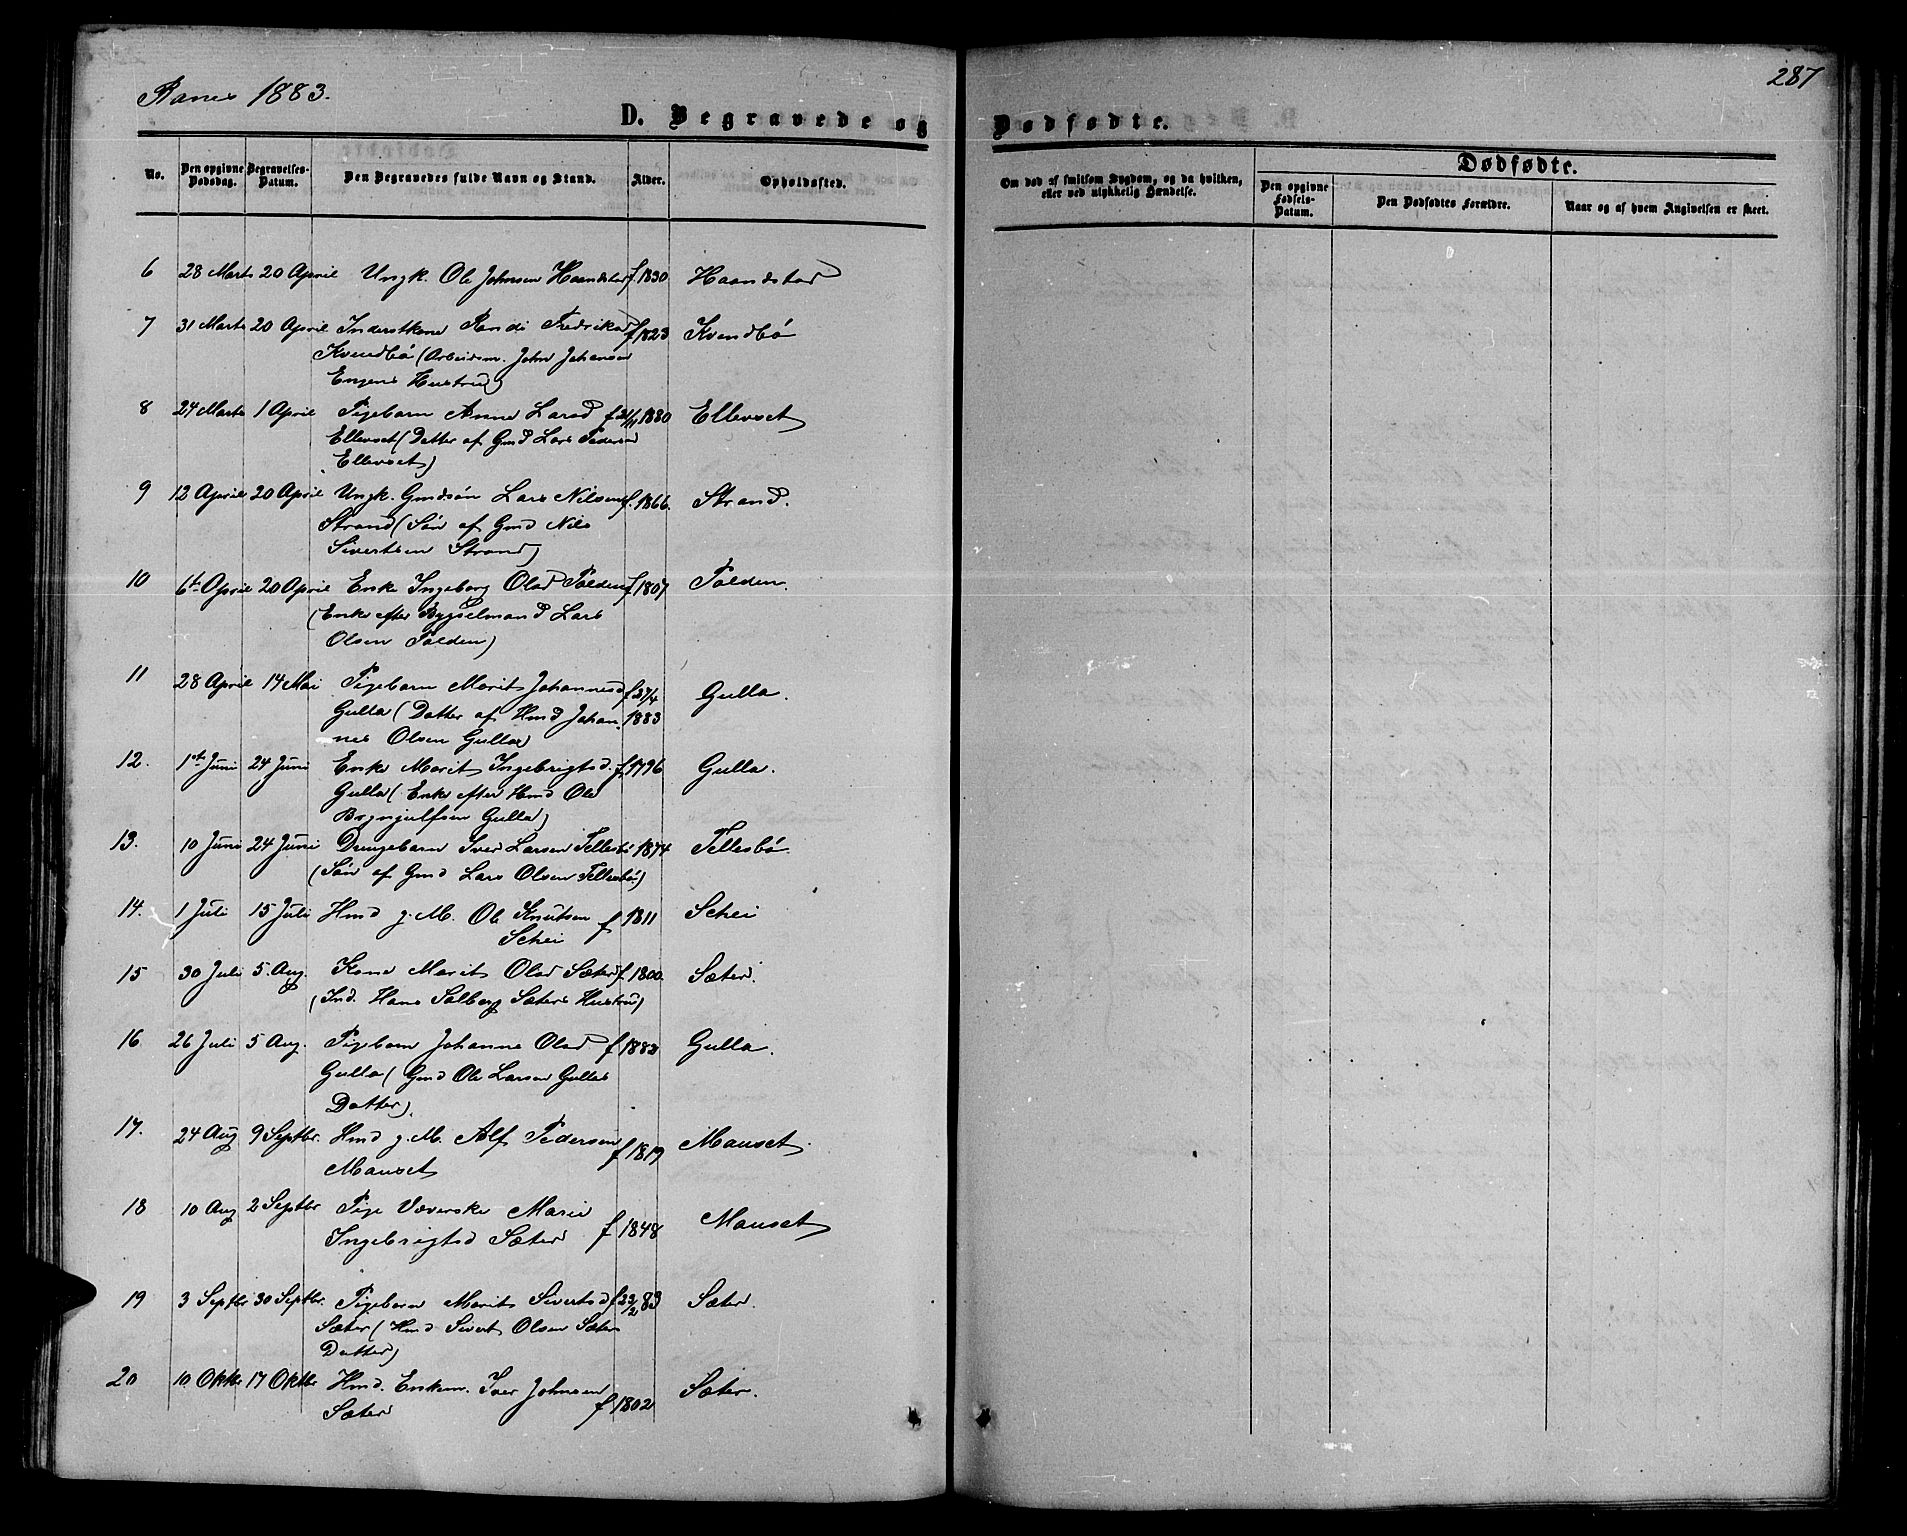 Ranes 1883.
287
D. Begravede og Dødfødte.
No.
Den opgivne Dødsdag.
Begravelses-Datum.
Den Begravedes fulde Navn og Stand.
Alder.
Opholdssted.
Om død af smitsom Sygdom, og da hvilken, eller ved ulykkelig Hændelse.
Dødfødte.
Den opgivne Fødsels-Datum.
Den Dødfødtes Forældre.
Naar og af hvem Angivelsen er skeet.
6 28 Marts 20 April Ungk. Ole Johnsen Haandstad f. 1830 Haandstad
7 31 Marts 20 April Inderstkone Randi Fredriksd f 1823 Kvendbø
Kvendbø (Arbeidsm. John Johansen
Engens Hustru)
8 24 Marts 1 April Pigebarn Anne Larsd f 21/11 1880 Ellevset
Ellevset (Datter af Gmd Lars Pedersen
Ellevset)
9 12 April 20 April Ungk. Gmdsøn Lars Nilsen f. 1866. Strand.
Strand (Søn af Gmd Nils
Sivertsen Strand)
10 6te April 20 April Enke Ingeborg Olsd Polden f 1807 Polden.
(Enke efter Bygselmand Lars
Olsen Polden)
11 28 April 14 Mai Pigebarn Marit Johannesd f 27/4 1883 Gulla.
Gulla (Datter af Hmd Johan
nes Olsen Gulla)
12. 1ste Juni 24 Juni Enke Marit Ingebrigtsd. f. 1796 Gulla.
Gulla (Enke efter Hmd Ole
Brynjulfsen Gulla)
13. 10 Juni 24 Juni Drengebarn Iver Larsen Tellesbø 1874 Tellesbø.
(Søn af Gmd Lars Olsen Tellesbø)
14. 1 Juli 15 Juli Hmd g. M. Ole Knutsen f 1811 Schei
Schei
15 30 Juli 5. Aug. Kone Marit Olsd Sæter f. 1800. Sæter.
(Ind. Hans Solberg Sæters Hustru)
16 26 Juli 5 Aug. Pigebarn Johanne Olsd f 1883 Gulla.
Gulla (Gmd Ole Larsen Gullas
Datter).
17. 24 Aug 9 Septbr. Hmd g. M. Alf Pedersen f 1819 Mauset.
Mauset
18 10 Aug 2 Septbr Pige Væverske Marie
Ingebrigtsd Sæter f 1848 Mauset
19 3 Septbr 30 Septbr. Pigebarn Marit Sivertsd f 23/2 83 Sæter.
Sæter (Hmd Sivert Olsen Sæter
Datter)
20 10 Oktbr 17 Oktbr Hmd. Enkem. Iver Johnsen f 1802 Sæter.
Sæter